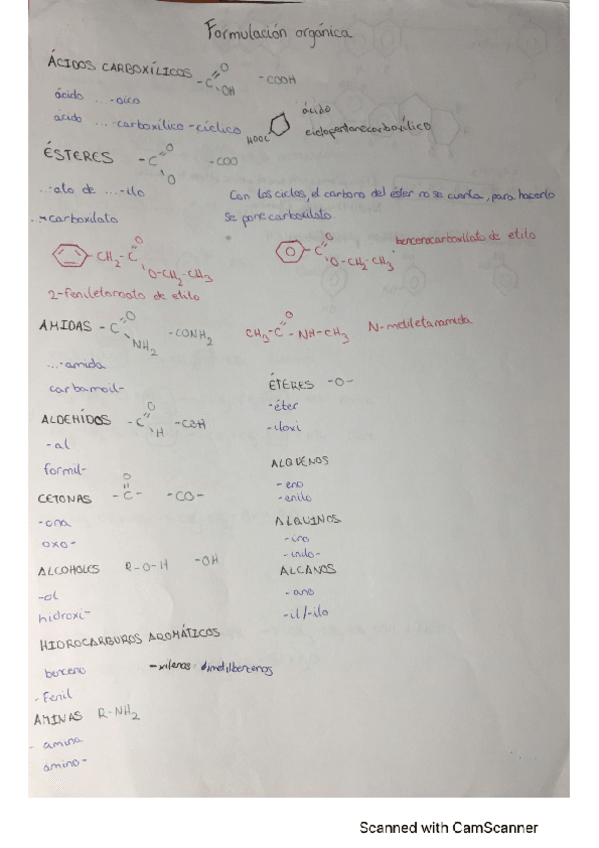 Formulación orgánica
ÁCIDOS CARBOXÍLICOS -C O OH -COOH
ácido ...-oico
ácido ...-carboxílico -cíclico HOOC ácido ciclopentanocarboxílico
ÉSTERES -C O O -COO
...-ato de ...-ilo
...-carboxilato
Con los ciclos, el carbono del éster no se cuenta, para hacerlo
se pone carboxilato
CH2-C O O-CH2-CH3
2-feniletanoato de etilo
C O O-CH2-CH3
bencenocarboxilato de etilo
AMIDAS -C O NH2 -CONH2
...-amida
carbamoil-
CH3-C O -NH-CH3 N-metiletanamida
ALDEHÍDOS -C O H -COH
-al
formil-
CETONAS O -C- -CO-
-ona
oxo-
ALCOHOLES R-O-H -OH
-ol
hidroxi-
HIDROCARBUROS AROMÁTICOS
benceno
-Fenil
-xilenos: dimetilbencenos
AMINAS R-NH2
- amina
amino-
ÉTERES -O-
-éter
-iloxi
ALQUENOS
-eno
-enilo
ALQUINOS
-ino
ALCANOS
-ano
-il/-ilo
Scanned with CamScanner